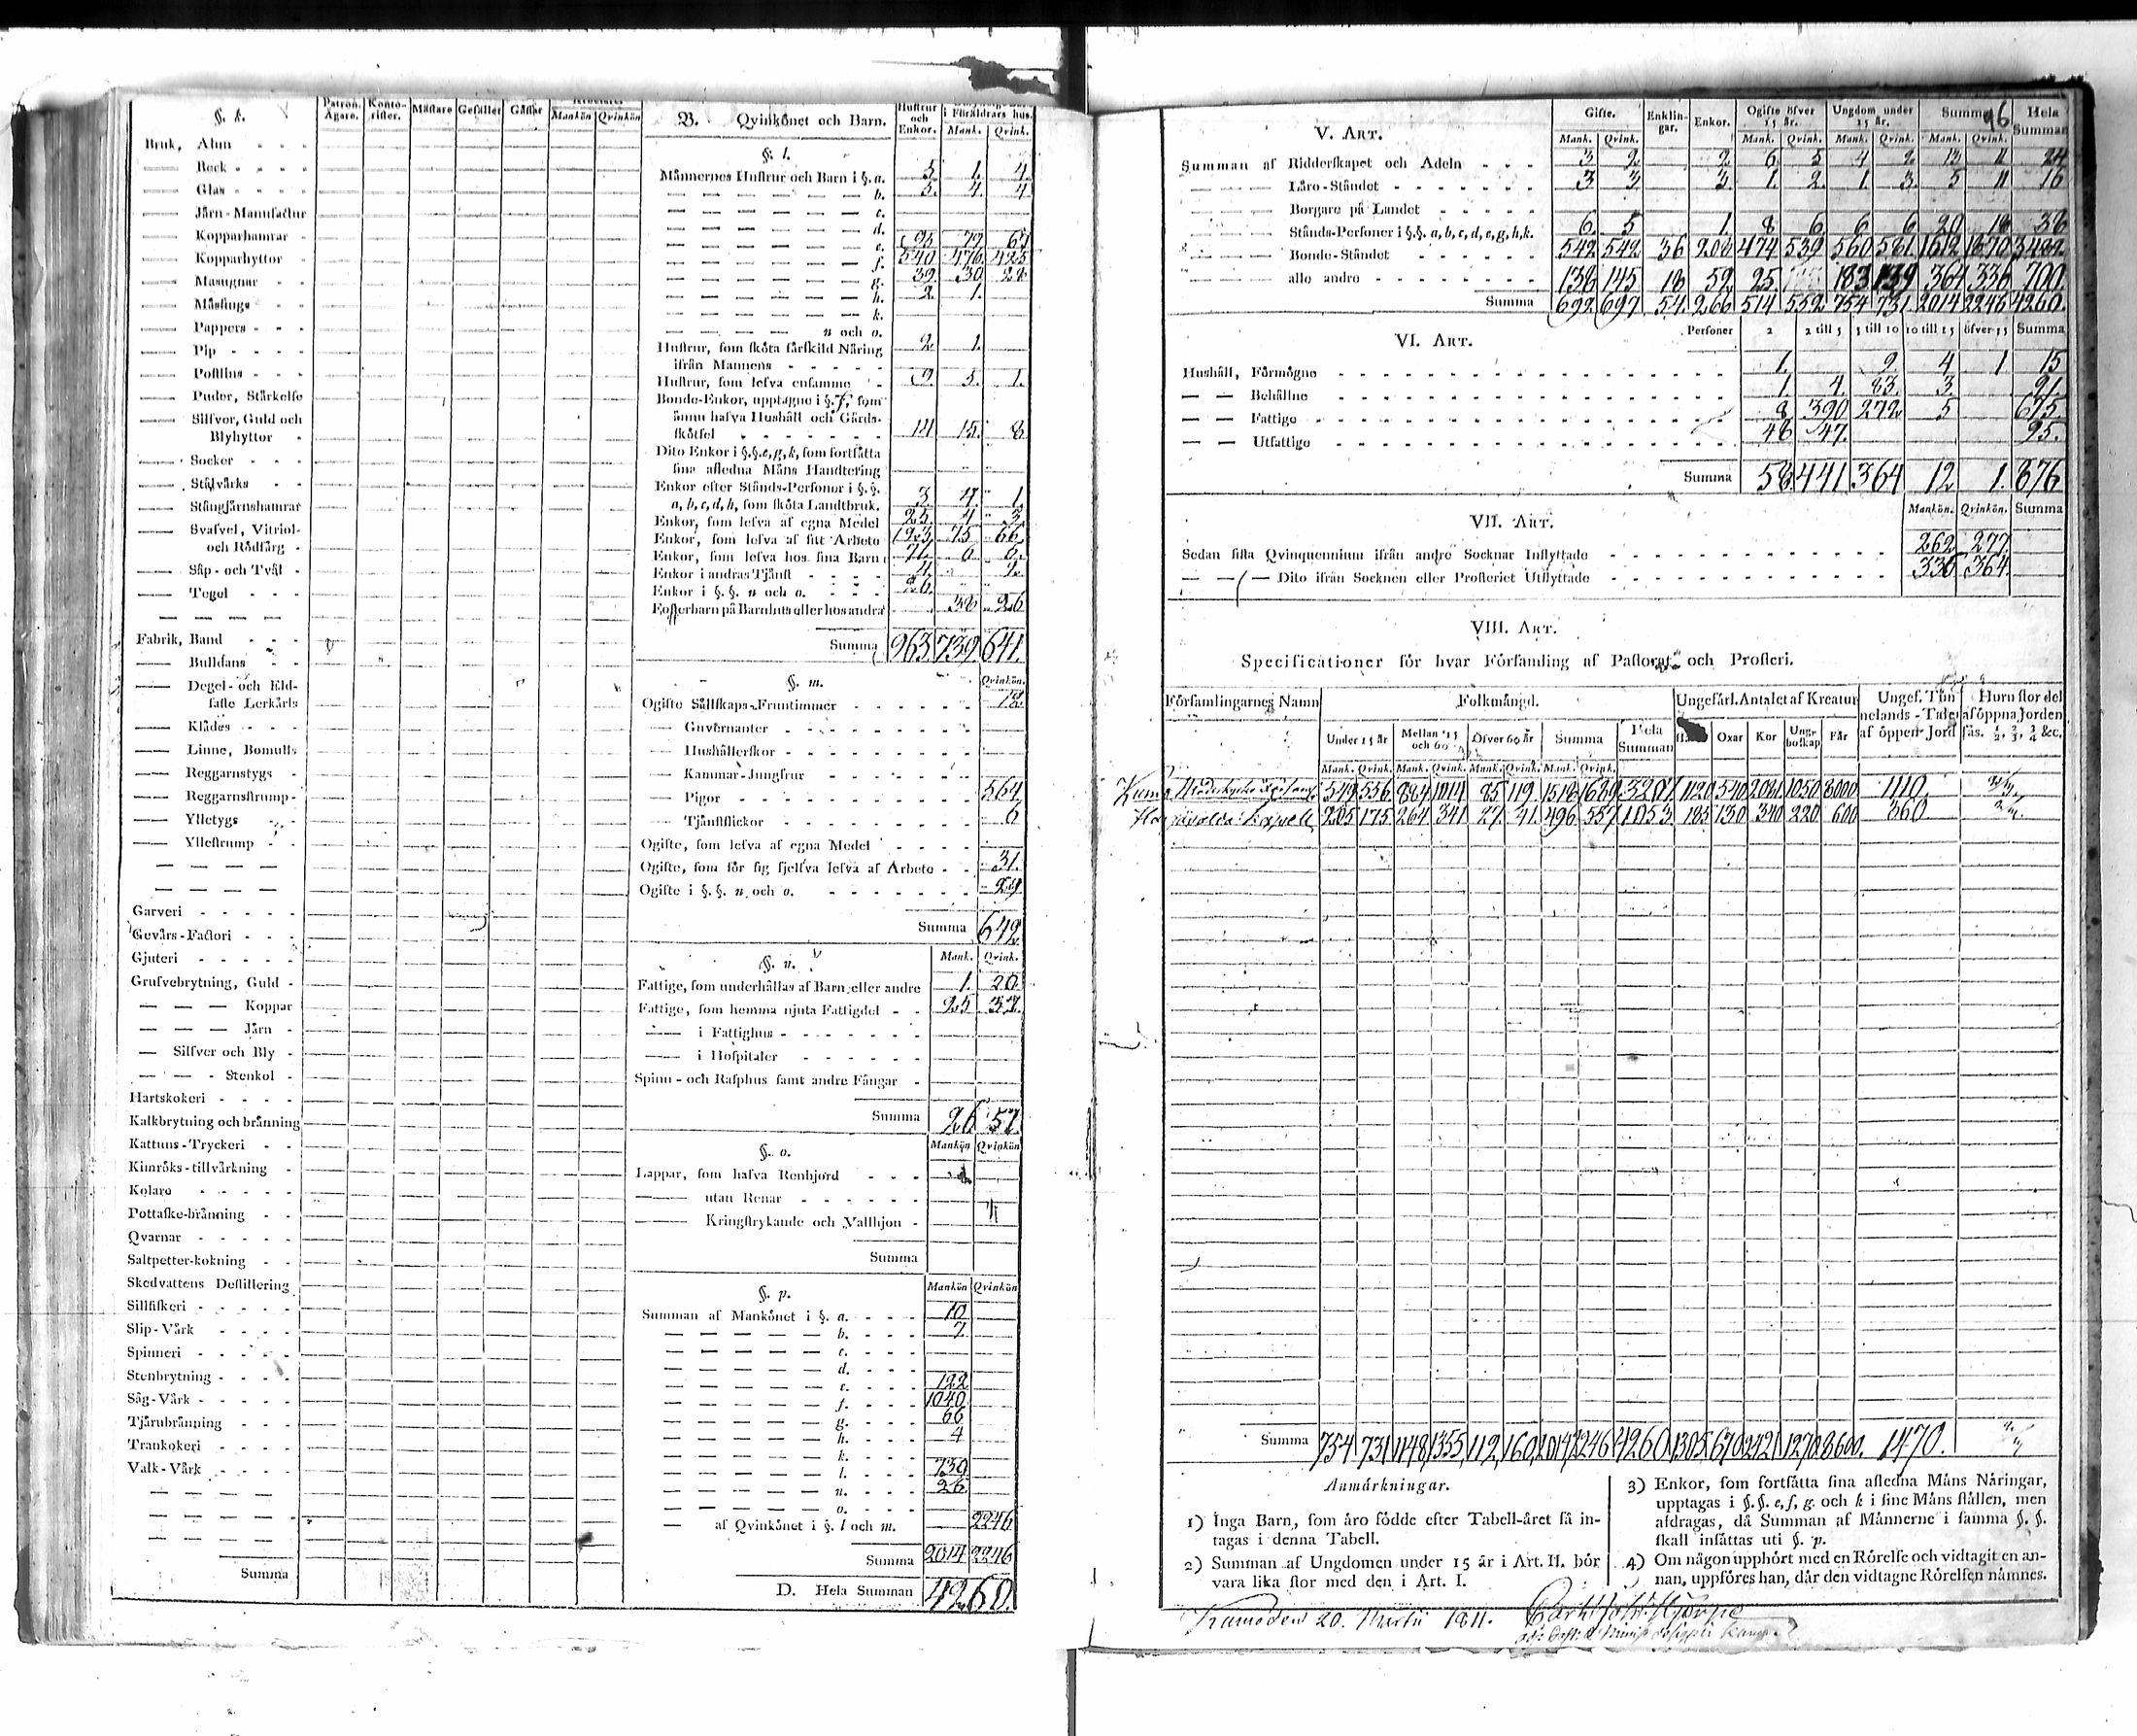 §. k.
Patron. Ägare. Konto-rister. Mästare Gesäller Gåssar Arbetare Mankön Qvinkön
Bruk, Alun
Beck
Glas
Järn-Manufactur
Kopparhamrar
Kopparhyttor
Masugnar
Mässings
Pappers
Pip
Postlins
Puder, Stärkelse
Silfver, Guld och
Blyhyttor
Socker
Stålvärks
Stångjärnshamrar
Svafvel, Vitriol-
och Rödfärg
Såp- och Tvål
Tegel
Fabrik, Band
Bulldans
Degel- och Eld-
faste Lerkärls
Klädes
Linne, Bomulls
Reggarnstygs
Reggarnsstrump-
Ylletygs
Yllestrump
Garveri
Gevärs-Factori
Gjuteri
Grufvebrytning, Guld
Koppar
Järn
Silfver och Bly
Stenkol
Hartskokeri
Kalkbrytning och bränning
Kattuns-Tryckeri
Kimröks-tillvärkning
Kolare
Pottaske-bränning
Qvarnar
Saltpetter-kokning
Skedvattens Destillering
Sillfiskeri
Slip-Värk
Spinneri
Stenbrytning
Såg-Värk
Tjärubränning
Trankokeri
Valk-Värk
Summa
B. Qvinkönet och Barn. Hustrur och Enkor. i Föräldrars hus. Mank. Qvink.
§. l.
Männernes Hustrur och Barn i §. a. 5 1. 4.
b. 5. 4. 4
c.
d.
e. 93 77 67
f. 540 476 425
g. 39 30 28
h. 2. 1.
k.
n och o.
Hustrur, som sköta särskild Näring 2 1.
ifrån Mannens
Hustrur, som lefva ensamme 9. 5. 1.
Bonde-Enkor, upptagne i §. f, som
ännu hafva Hushåll och Gårds-
skötsel 14 15. 8
Dito Enkor i §.§. e, g, k, som fortsätta
sina afledna Mäns Handtering
Enkor efter Stånds-Personer i §.§.
a, b, c, d, h, som sköta Landtbruk. 3 4. 1.
Enkor, som lefva af egna Medel 25. 4 3
Enkor, som lefva af sitt Arbete 123 75 66
Enkor, som lefva hos sina Barn 71. 6 6.
Enkor i andras Tjänst 4. 2.
Enkor i §.§. n och o. 26.
Fosterbarn på Barnhus eller hos andra 38 26
Summa 963 739. 641.
§. m. Qvinkön.
Ogifte Sällskaps-Fruntimmer 18.
Guvernanter
Hushållerskor
Kammar-Jungfrur
Pigor 564
Tjänstflickor 6
Ogifte, som lefva af egna Medel
Ogifte, som för sig sjelfva lefva af Arbete 31.
Ogifte i §.§. n och o. 23
Summa 642
§. n. Mank. Qvink.
Fattige, som underhållas af Barn eller andre 1. 20
Fattige, som hemma njuta Fattigdel 25 37.
i Fattighus
i Hospitaler
Spinn- och Rasphus samt andre Fångar
Summa 26 57.
§. o. Mankön Qvinkön
Lappar, som hafva Renhjord
utan Renar
Kringstrykande och Vallhjon
Summa
§. p. Mankön Qvinkön
Summan af Mankönet i §. a. 10
b. 7
c.
d.
e. 122
f. 1040
g. 66
h. 4
k.
l. 739
n. 26
o.
af Qvinkönet i §. l och m. 2246
Summa 2014 2246
D. Hela Summan 4260.
96
V. Art. Gifte. Mank. Qvink. Enklin-gar. Enkor. Ogifte öfver 15 år. Mank. Qvink. Ungdom under 15 år. Mank. Qvink. Summa Mank. Qvink. Hela Summan
Summan af Ridderskapet och Adeln 3 2 2 6 5 4 2 13 11 24
Läro-Ståndet 3 3 3 1. 2. 1. 3. 5 11 16
Borgare på Landet
Stånds-Personer i §.§. a, b, c, d, e, g, h, k. 6. 5 1. 8 6. 6 6 20 18 38
Bonde-Ståndet 542 542 36 208 474 539 560 581 1612 1870 3482.
alle andre 138 145 18 52 25. 183 139 364 336 700.
Summa 692 697 54. 266 514 552 754 731. 2014 2246 4260.
VI. Art. Personer 2 2 till 5 5 till 10 10 till 15 öfver 15 Summa
Hushåll, Förmögne 1. 9. 4 1 15
Behållne 1. 4. 83. 3 91.
Fattige 8 390 272 5 675.
Utfattige 48 47. 95.
Summa 58 441 364 12 1. 876
VII. Art. Mankön. Qvinkön. Summa
Sedan sista Qvinquennium ifrån andre Socknar Inflyttade 262 277.
Dito ifrån Socknen eller Prosteriet Utflyttade 336 364.
VIII. Art.
Specificationer för hvar Församling af Pastorat och Prosteri.
Församlingarnes Namn Folkmängd. Ungefärl. Antalet af Kreatur Ungef. Tun-nelands-Talet af öppen Jord Huru stor del af öppna Jorden sås. ½, ⅔, ¾ &c.
Under 15 år Mellan 15 och 60 Öfver 60 år Summa Hela Summan Oxar Kor Unge-boskap Får
Mank. Qvink. Mank. Qvink. Mank. Qvink. Mank. Qvink.
Kumla Moderkyrko 549 556 884 1014 85 119. 1518 1689 3207 1120 540 2081 1050 8000 1110 2/3
Kapell 205 175 264 341 27. 41. 496 557 1053 185 130 340 220 600 360 2/3
Summa 754 731 1148 1355 112 160 2014 2246 4260 1305 670 2421 1270 8600. 1470. 2/3
Anmärkningar.
1) Inga Barn, som äro födde efter Tabell-året få in-
tagas i denna Tabell.
2) Summan af Ungdomen under 15 år i Art. II. bör
vara lika stor med den i Art. I.
3) Enkor, som fortsätta sina afledna Mäns Näringar,
upptagas i §.§. e, f, g. och k i sine Mäns ställen, men
afdragas, då Summan af Männerne i samma §.§.
skall insättas uti §. p.
4) Om någon upphört med en Rörelse och vidtagit en an-
nan, uppföres han, där den vidtagne Rörelsen nämnes.
Kumla den 20. Martii 1811.